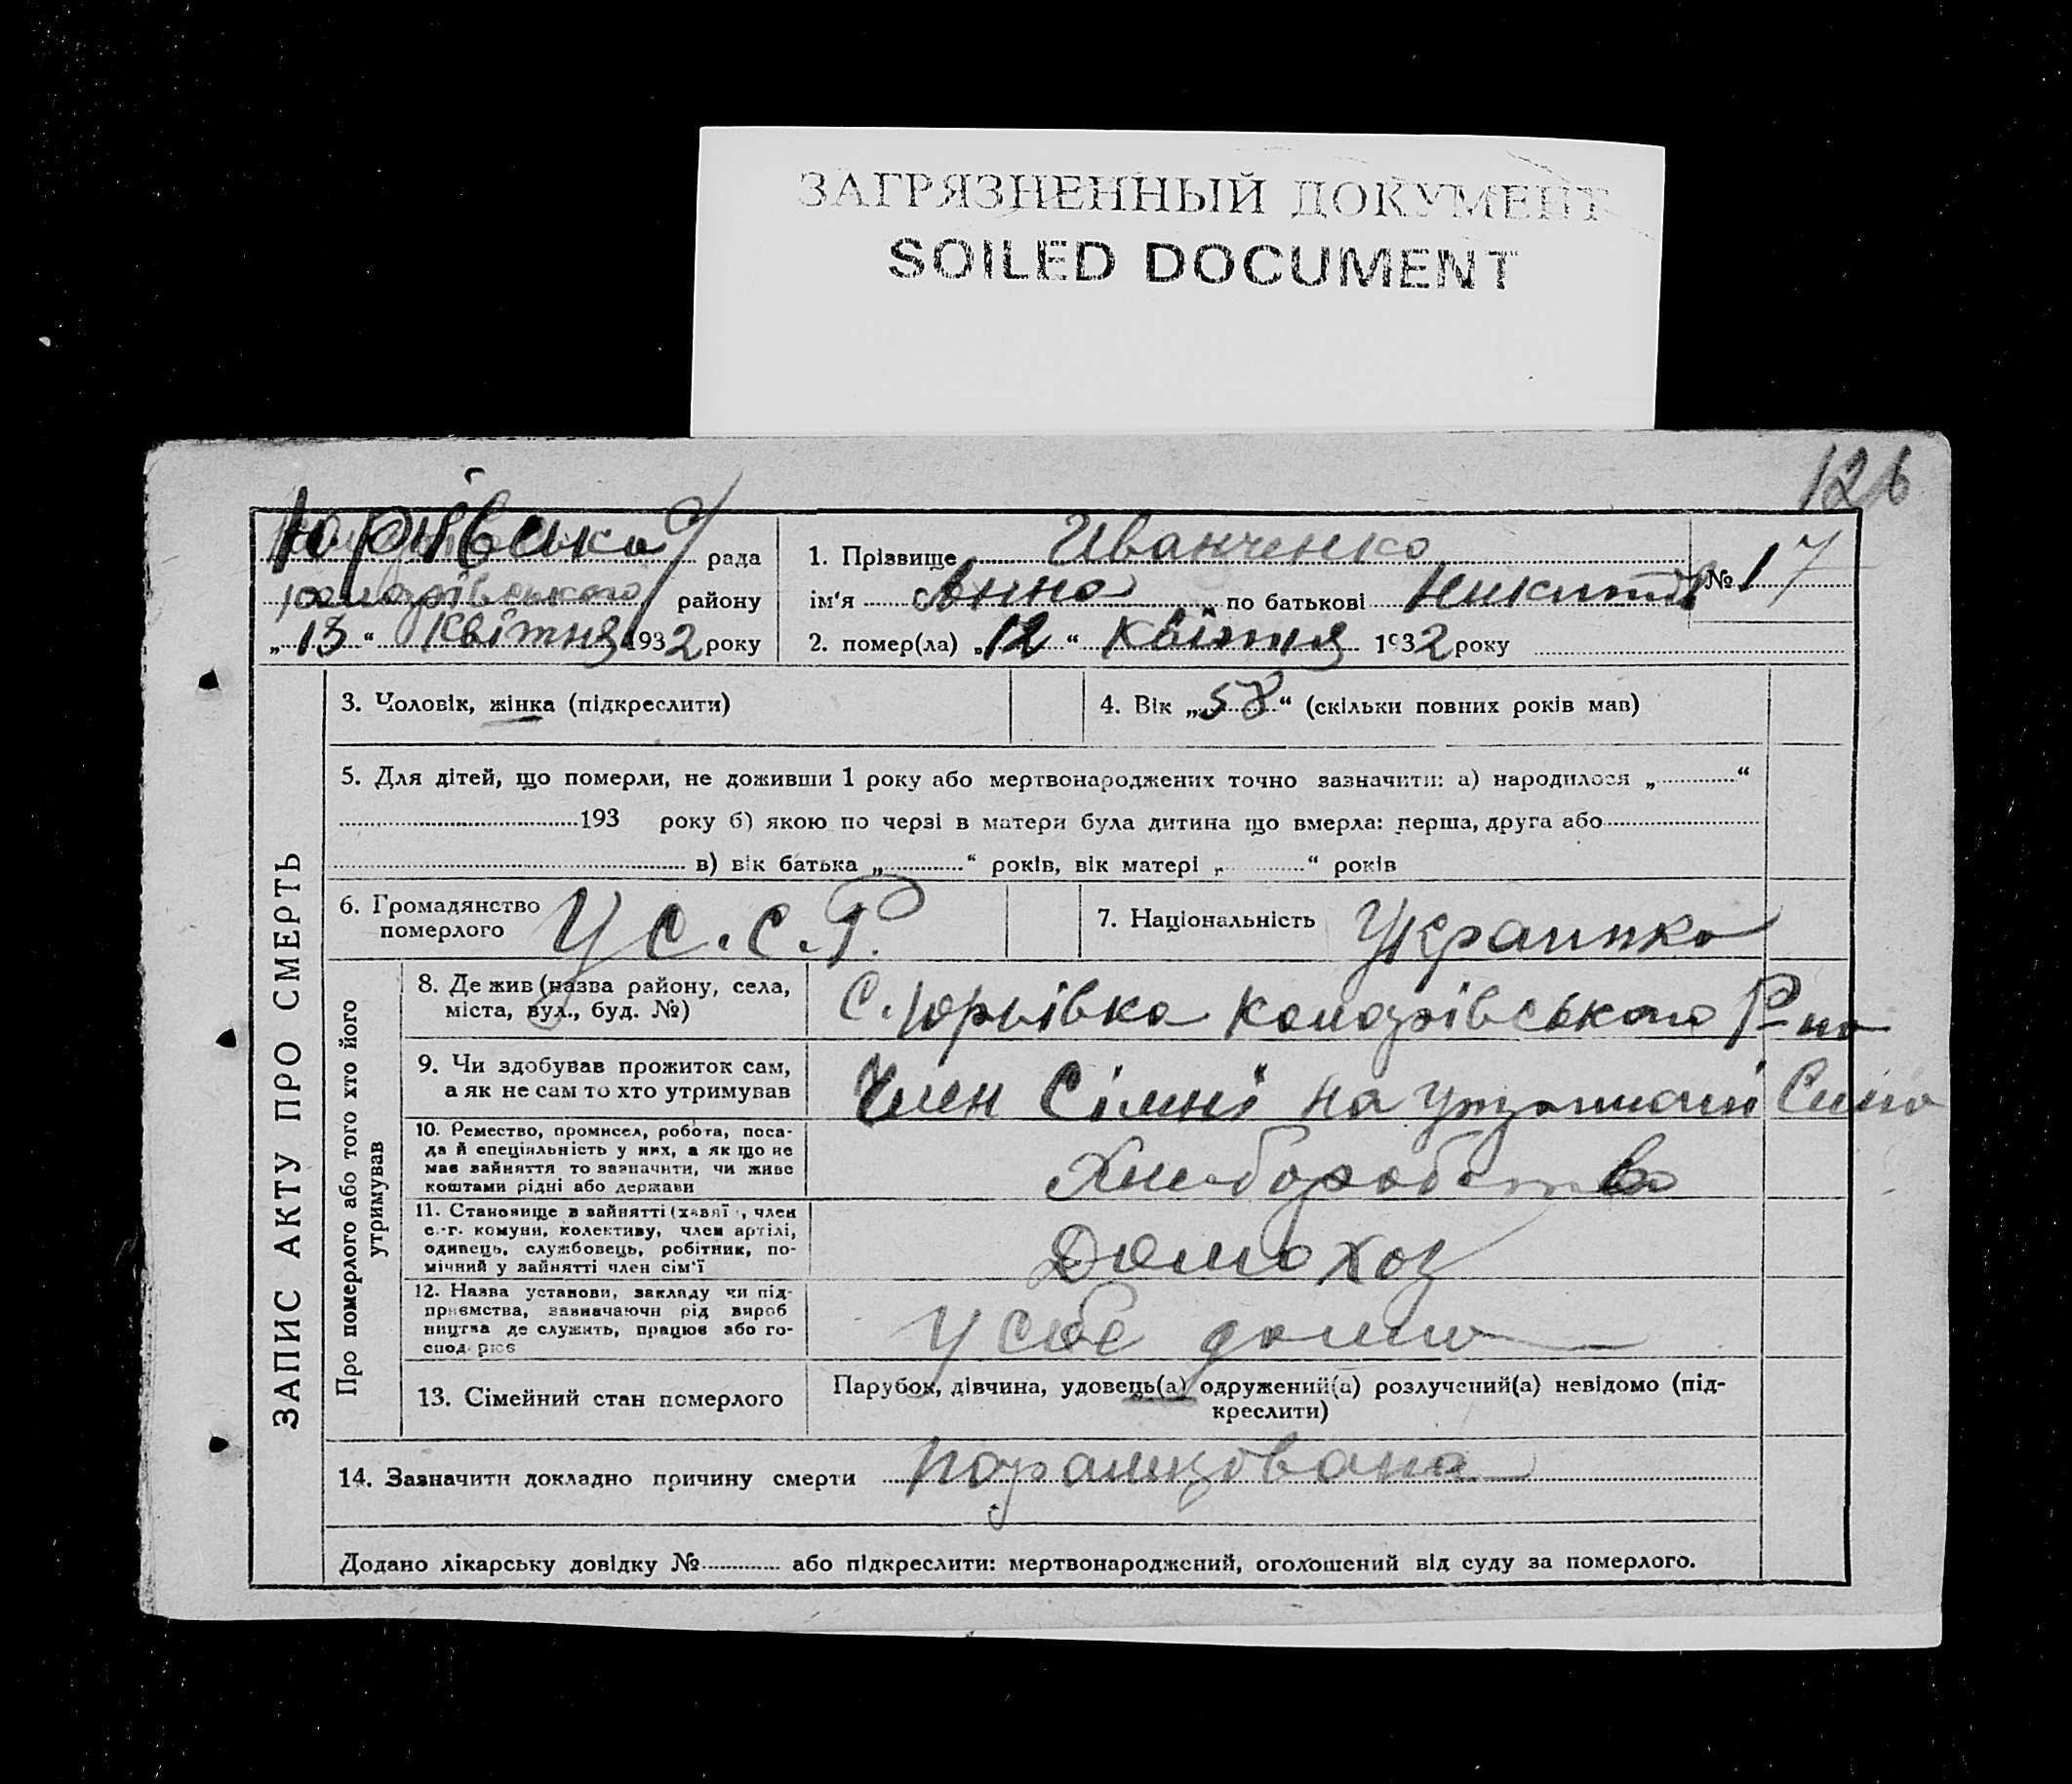 ЗАГРЯЗНЕННЫЙ ДОКУМЕНТ
SOILED DOCUMENT
126
Юріївська рада
району
„13“ Квітня 1932 року
1. Прізвище Иванченко
№ 17
ім'я Анна по батькові
2. помер(ла) „12“ Квітня 1932 року
ЗАПИС АКТУ ПРО СМЕРТЬ
3. Чоловік, жінка (підкреслити)
4. Вік „58“ (скільки повних років мав)
5. Для дітей, що померли, не доживши 1 року або мертвонароджених точно зазначити: а) народилося „ “
193 року б) якою по черзі в матери була дитина що вмерла: перша, друга або
в) вік батька „ “ років, вік матері „ “ років
6. Громадянство
померлого
У С. С. Р.
7. Національність Украинка
Про померлого або того хто його
утримував
8. Де жив (назва району, села,
міста, вул., буд. №)
С. Юрьівка Р-на
9. Чи здобував прожиток сам,
а як не сам то хто утримував
Член Сімні на
10. Ремество, промисел, робота, поса-
да й спеціяльність у них, а як що не
має зайняття то зазначити, чи живе
коштами рідні або держави
11. Становище в зайнятті (хазяї , член
с.-г. комуни, колективу, член артілі,
одинець, службовець, робітник, по-
мічний у зайнятті член сім'ї
Домохоз
12. Назва установи, закладу чи під-
приємства, зазначаючи рід вироб
ництва де служить, працює або го-
спод рює
У себе дома
13. Сімейний стан померлого
Парубок, дівчина, удовець(а) одружений(а) розлучений(а) невідомо (під-
креслити)
14. Зазначити докладно причину смерти парализована
Додано лікарську довідку № або підкреслити: мертвонароджений, оголошений від суду за померлого.